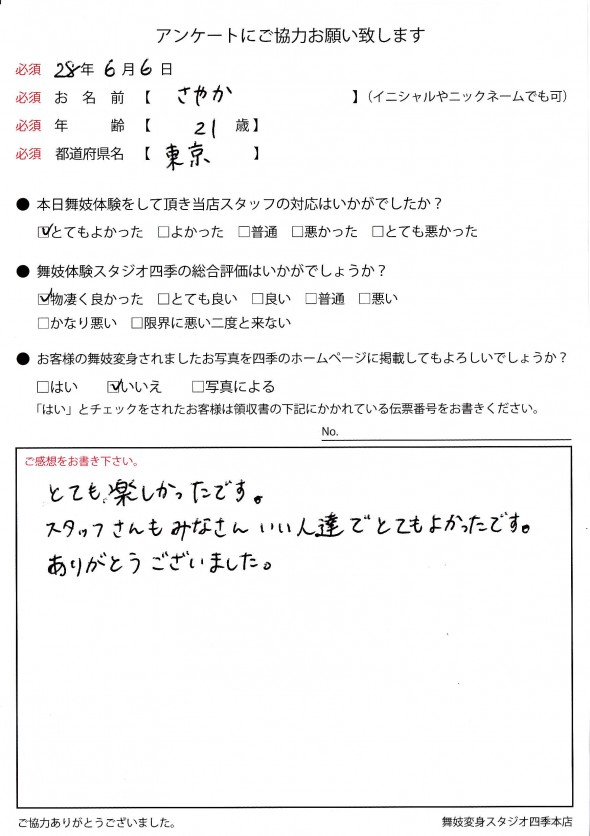 アンケートにご協力お願い致します
必須 28年 6月6日
必須 お名前【 さやか 】(イニシャルやニックネームでも可)
必須 年齢【 21 歳】
必須 都道府県名【 東京 】
● 本日舞妓体験をして頂き当店スタッフの対応はいかがでしたか？
☑とてもよかった □よかった □普通 □悪かった □とても悪かった
● 舞妓体験スタジオ四季の総合評価はいかがでしょうか？
☑物凄く良かった □とても良い □良い □普通 □悪い
□かなり悪い □限界に悪い二度と来ない
● お客様の舞妓変身されましたお写真を四季のホームページに掲載してもよろしいでしょうか？
□はい ☑いいえ □写真による
「はい」とチェックをされたお客様は領収書の下記にかかれている伝票番号をお書きください。
No.
ご感想をお書き下さい。
とても楽しかったです。
スタッフさんもみなさんいい人達でとてもよかったです。
ありがとうございました。
ご協力ありがとうございました。 舞妓変身スタジオ四季本店